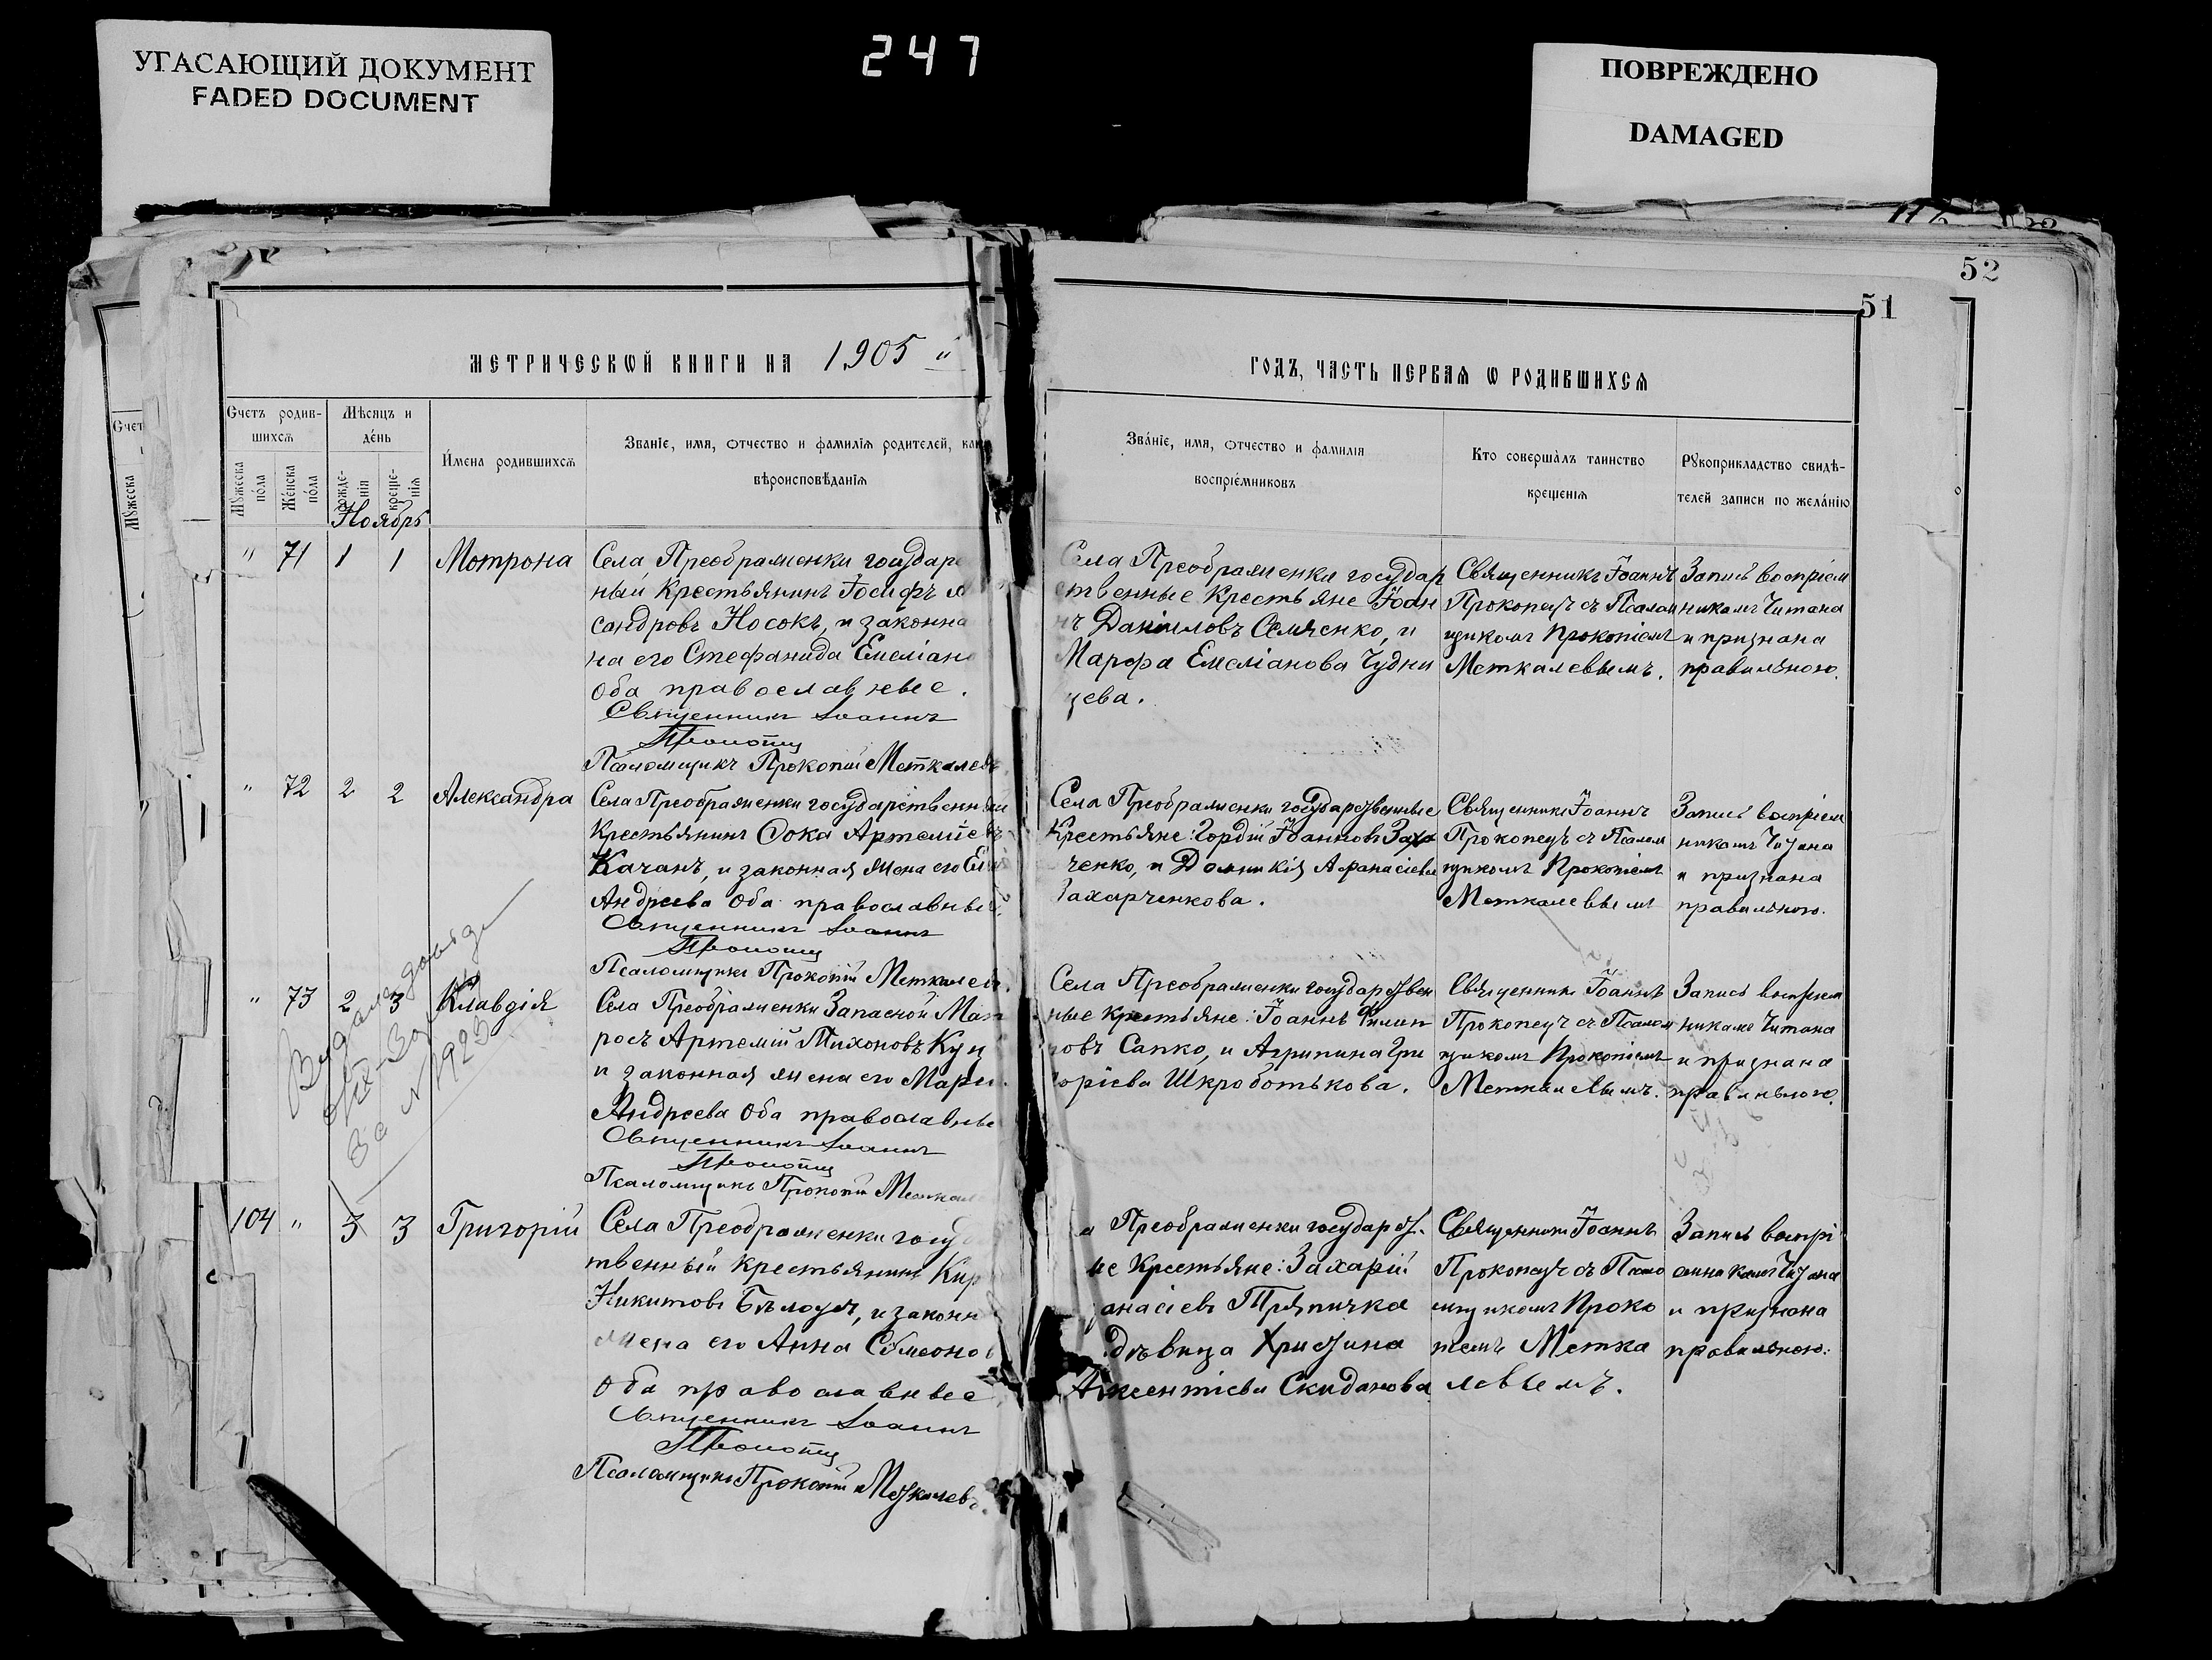 УГАСАЮЩИЙ ДОКУМЕНТ
FADED DOCUMENT
247
ПОВРЕЖДЕНО
DAMAGED
52
51
МЕТРИЧЕСКѠЙ КНИГИ НА 1905 "
ГОДЪ, ЧАСТЬ ПЕРВАѦ Ѡ РОДИВШИХСѦ
Счет
Мꙋжеска
Счетъ родив-
шихсѧ
Мꙋжеска
по́ла
Же́нска
по́ла
Мѣсяцъ и
де́нь
рожде-
нія
креще-
нія
И́мена родившихсѧ
Званіе, имя, ѻтчество и фамиліѧ родителей, как
вѣроисповѣданіѧ
Зва́ніе, имя, ѻтчество и фамиліѧ
воспріе́мниковъ
Кто соверша̀лъ таинство
крещеніѧ
Рꙋкоприкладство свидѣ-
телей записи по жела́нію
Ноябрь
" 71 1 1 Мотрона
Села Преображенки государс
ный Крестьянинъ Іосифъ
сандровъ Носокъ, и законна
на его Стефанида Емеліан
Оба православные.
Священникъ Іоаннъ
Прокопец
Псаломщикъ Прокопій Меткалевъ
Села Преображенки государ
ственные Крестьяне Іоан
нъ Даніиловъ Семченко, и
Марфа Емеліанова Чудни
цева.
Священникъ Іоаннъ
Прокопецъ съ Псалом
щикомъ Прокопіемъ
Меткалевымъ.
Запись воспріем
никамъ Читана
и признана
правильною.
" 72 2 2 Александра
Села Преображенки государственный
Крестьянинъ Ѳока Артеміевъ
Качанъ, и законная жена его
Андреева Оба православные.
Священникъ Іоаннъ
Прокопец
Псаломщикъ Прокопій Меткалевъ.
Села Преображенки государственные
Крестьяне: Гордій Іоанновъ Захар
ченко, и Домникія Афанасіева
Захарченкова.
Священникъ Іоаннъ
Прокопецъ съ Псалом
щикомъ Прокопіемъ
Меткалевымъ
Запись воспріем
никамъ Читана
и признана
правильною.
" 73 2 3 Клавдія
Села Преображенки Запасной Мат
росъ Артемій Тихоновъ Куц
и законная жена его Марі
Андреева Оба православные
Священникъ Іоаннъ
Прокопец
Псаломщикъ Прокопій Меткалев
Села Преображенки государствен
ные Крестьяне: Іоаннъ Филип
повъ Сапко, и Агрипина Гри
горіева Шкроботькова.
Священникъ Іоаннъ
Прокопецъ съ Псалом
щикомъ Прокопіемъ
Меткалевымъ.
Запись воспріем
никамъ Читана
и признана
правильною.
За N 1923
104 " 3 3 Григорій
Села Преображенки госуд
твенный крестьянинъ Кир
Никитовъ Бѣлоусъ, и законн
жена его Анна Сѵмеонов
Оба православные
Священникъ Іоаннъ
Прокопец
Псаломщикъ Прокопій Меткалевъ.
а Преображенки государст.
ые Крестьяне: Захарій
анасіевъ Тряпичка
дѣвица Христина
Авксентіева Скиданова
Священникъ Іоаннъ
Прокопецъ съ Псало
мщикомъ Проко
піемъ Метка
левымъ.
Запись воспрі
емникамъ Читана
и признана
правильною.